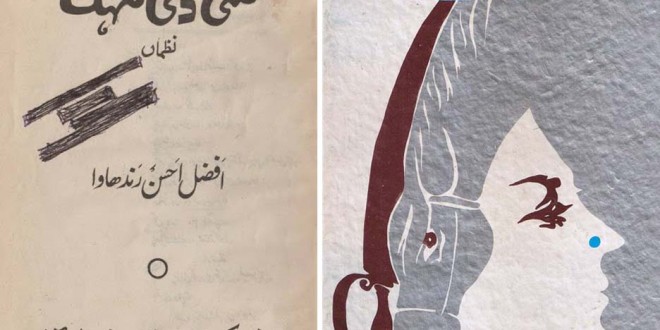 مٹی دی مہک
نظماں
اَفضل اَحسن رَندھاوا